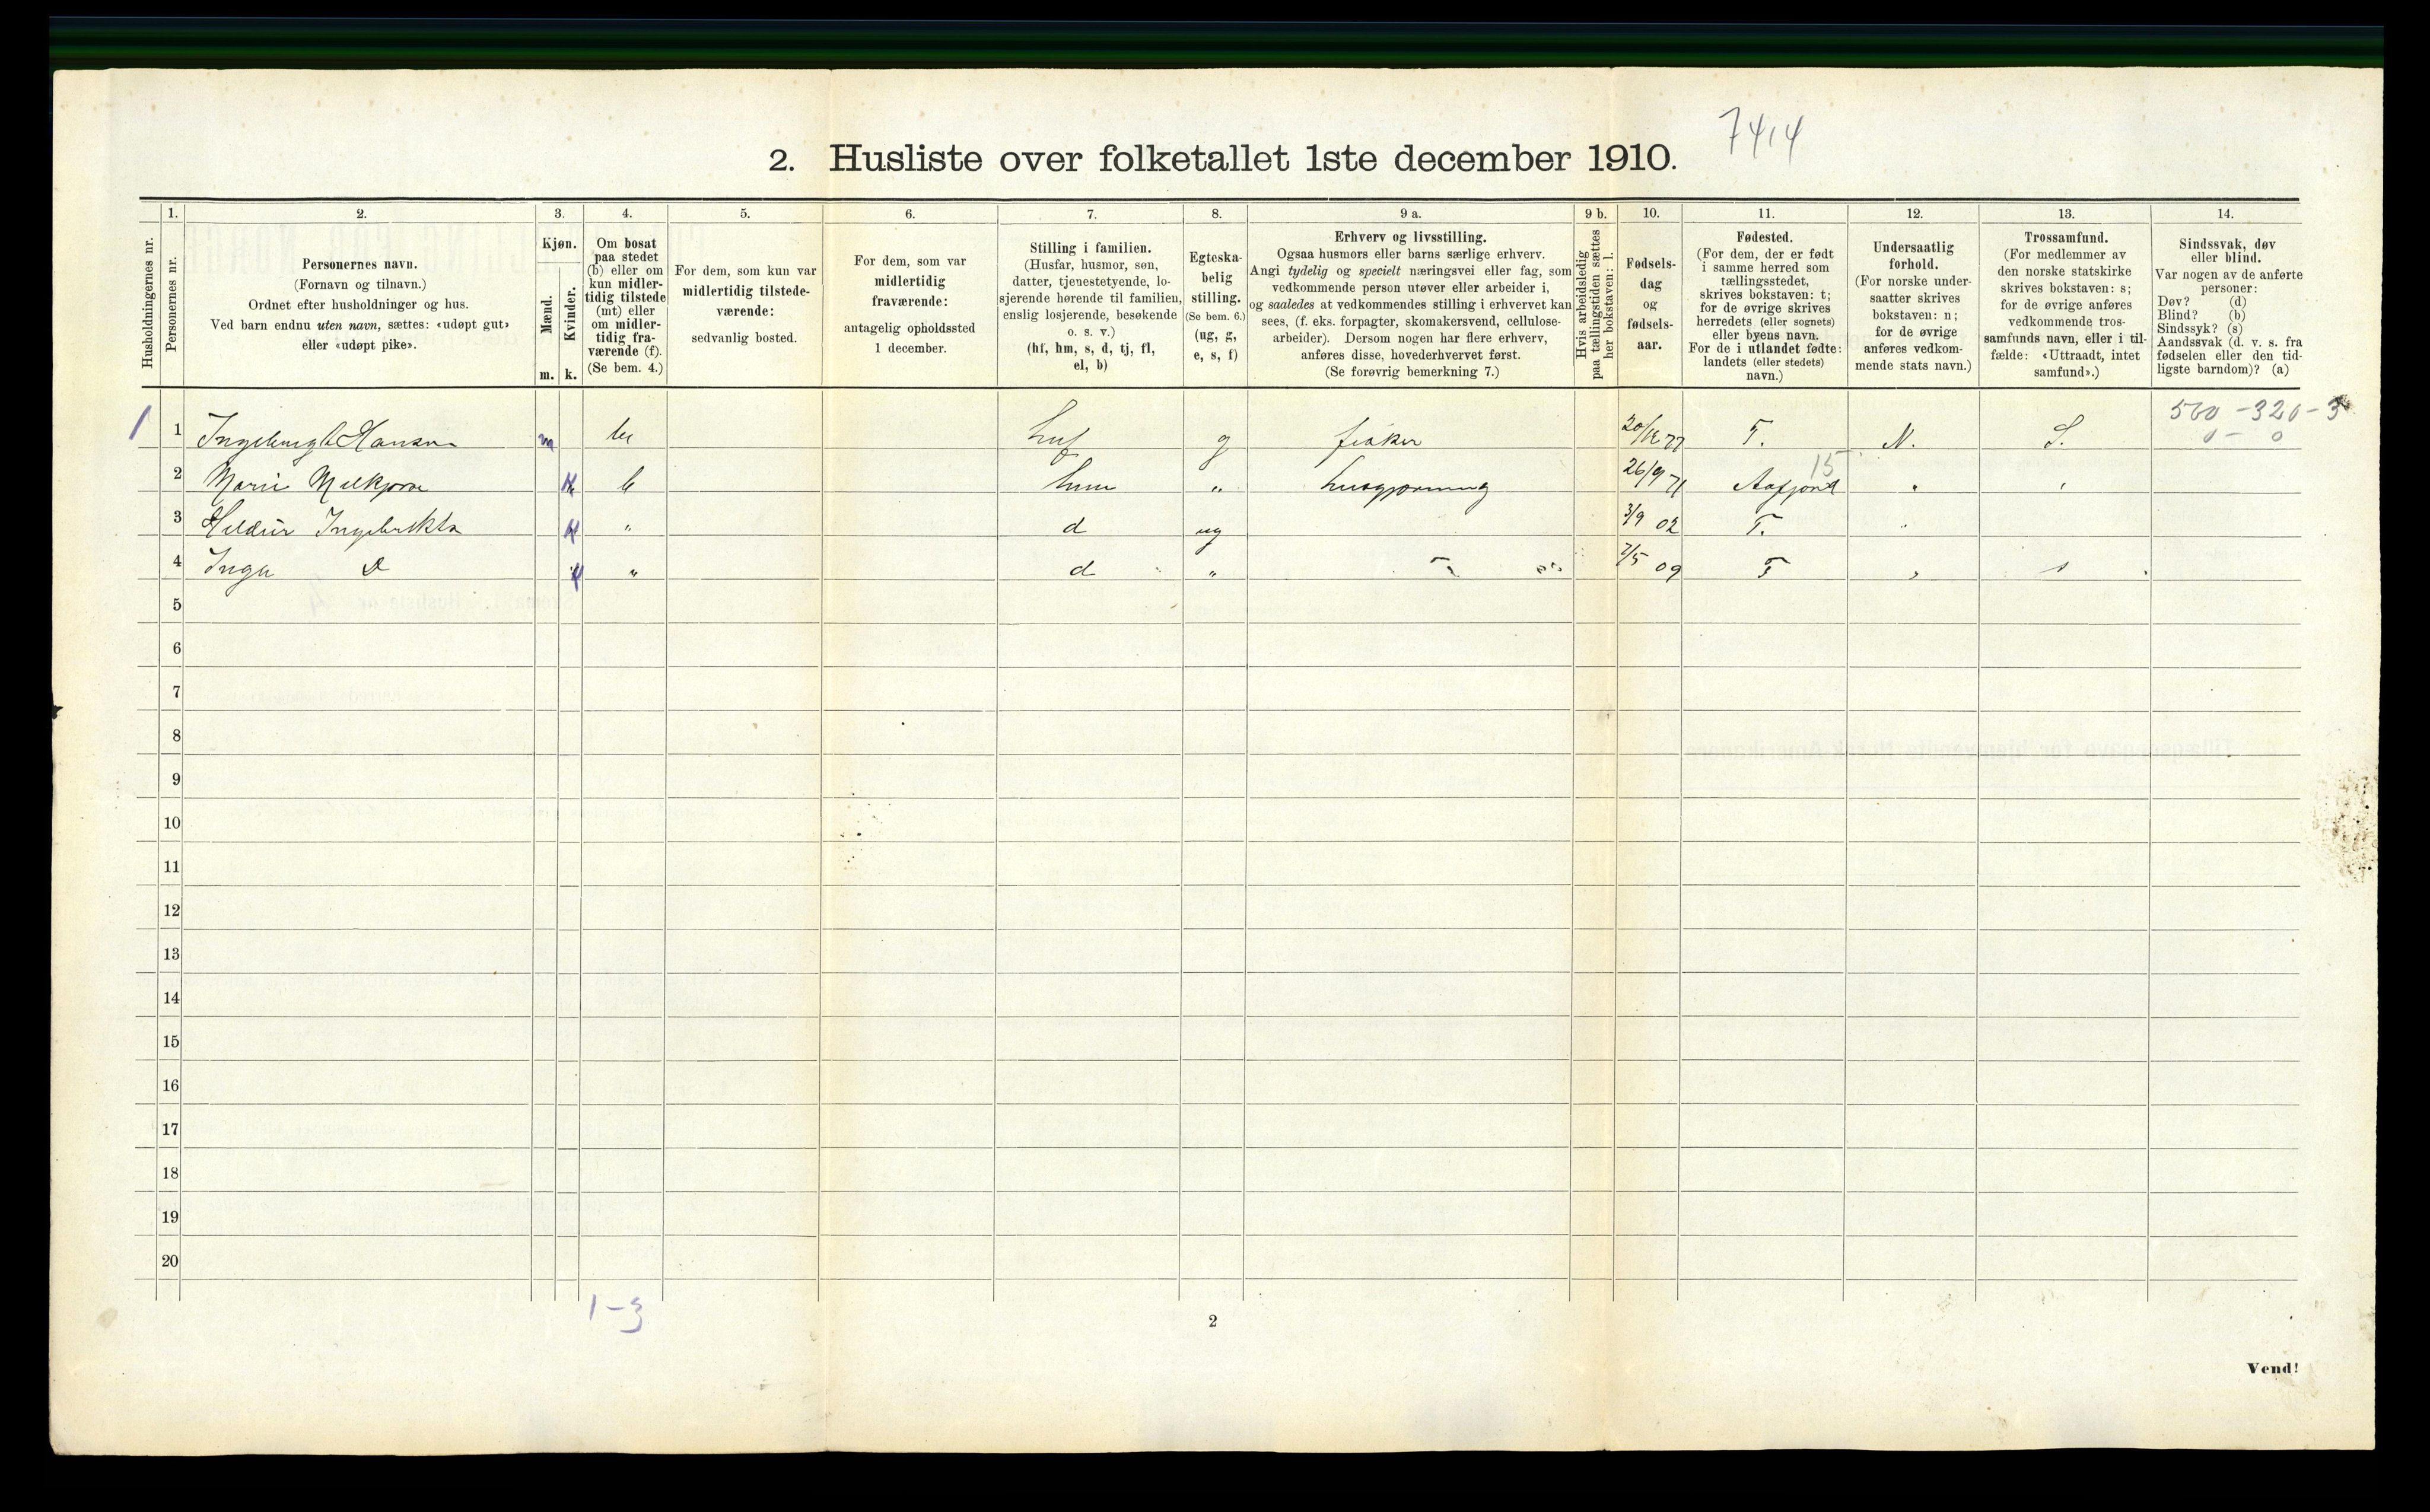 7414
2. Husliste over folketallet 1ste december 1910.
Husholdningernes nr.
1.
Personernes nr.
2.
Personernes navn.
(Fornavn og tilnavn.)
Ordnet efter husholdninger og hus.
Ved barn endnu uten navn, sættes: «udøpt gut»
eller «udøpt pike».
3.
Kjøn.
Mænd.
Kvinder.
m. k.
4.
Om bosat
paa stedet
(b) eller om
kun midler-
tidig tilstede
(mt) eller
om midler-
tidig fra-
værende (f).
(Se bem. 4.)
5.
For dem, som kun var
midlertidig tilstede-
værende:
sedvanlig bosted.
6.
For dem, som var
midlertidig
fraværende:
antagelig opholdssted
1 december.
7.
Stilling i familien.
(Husfar, husmor, søn,
datter, tjenestetyende, lo-
sjerende hørende til familien,
enslig losjerende, besøkende
o. s. v.)
(hf, hm, s, d, tj, fl,
el, b)
8.
Egteska-
belig
stilling.
(Se bem. 6.)
(ug, g,
e, s, f)
9 a.
Erhverv og livsstilling.
Ogsaa husmors eller barns særlige erhverv.
Angi tydelig og specielt næringsvei eller fag, som
vedkommende person utøver eller arbeider i,
og saaledes at vedkommendes stilling i erhvervet kan
sees, (f. eks. forpagter, skomakersvend, cellulose-
arbeider). Dersom nogen har flere erhverv,
anføres disse, hovederhvervet først.
(Se forøvrig bemerkning 7.)
9 b.
Hvis arbeidsledig
paa tællingstiden sættes
her bokstaven: l.
10.
Fødsels-
dag
og
fødsels-
aar.
11.
Fødested.
(For dem, der er født
i samme herred som
tællingsstedet,
skrives bokstaven: t;
for de øvrige skrives
herredets (eller sognets)
eller byens navn.
For de i utlandet fødte:
landets (eller stedets)
navn.)
12.
Undersaatlig
forhold.
(For norske under-
saatter skrives
bokstaven: n;
for de øvrige
anføres vedkom-
mende stats navn.)
13.
Trossamfund.
(For medlemmer av
den norske statskirke
skrives bokstaven: s;
for de øvrige anføres
vedkommende tros-
samfunds navn, eller i til-
fælde: «Uttraadt, intet
samfund».)
14.
Sindssvak, døv
eller blind.
Var nogen av de anførte
personer:
Døv? (d)
Blind? (b)
Sindssyk? (s)
Aandssvak (d. v. s. fra
fødselen eller den tid-
ligste barndom)? (a)
500 - 320 - 3
0 - 0
1 1 m g fisker 20/12 77 T. N. S.
15
2 Marie k b hm " husgjerning 26/9 71 Aafjord "
3 Hildur k " d ug 3/9 02 T. "
4 Inga k " d " 7/5 09 T
5
6
7
8
9
10
11
12
13
14
15
16
17
18
19
20
1-3
2
Vend!